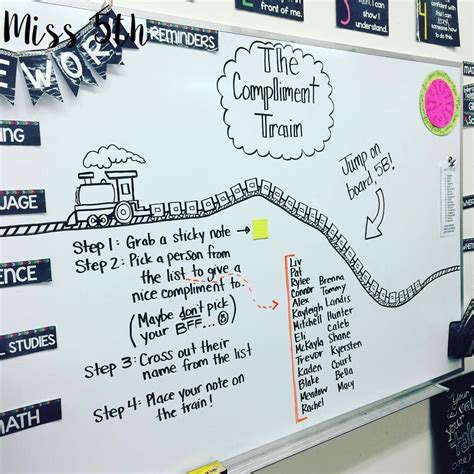 Miss 5th
REMINDERS
The
Compliment
Train
Jump on
board, 5B!
Step 1: Grab a sticky note
Step 2: Pick a person from
the list to give a
nice compliment to.
(Maybe don't pick
your BFF...)
Step 3: Cross out their
name from the list
Step 4: Place your note on
the train!
Liv
Pat
Rylee Brenna
Connor Tommy
Alex Landis
Kayleigh Hunter
Mitchell caleb
Eli Shane
McKayla Kyersten
Trevor Court
Kaden Bella
Blake Macy
Meadow
Rachel
MATH